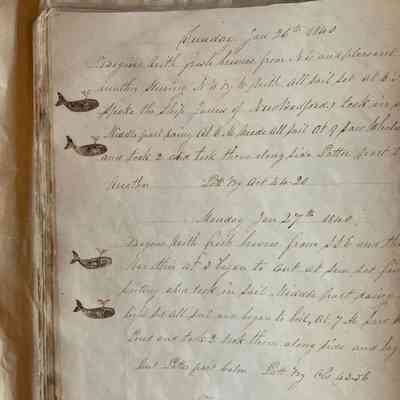 Sunday Jan 26th 1840
Begins with fresh breeses from N.E. and pleasant
weather Stearing N W By N with All sail set at 6
spoke the Ship James of New Bedford & took in
Middle part rainy At 6 AM Made all sail At 9 saw Whales
and took 2 and took them along side Latter part
Another Latt By Act 44-20
Monday Jan 27th 1840
Begins with fresh breeses from S S E and
weather at 3 began to cut at sun set
cutting and took in sail Middle part rainy
set all sail and began to boil, At 7 AM saw
and took 2 took them along side and
cut Latter part calm Latt By Obs 43-56